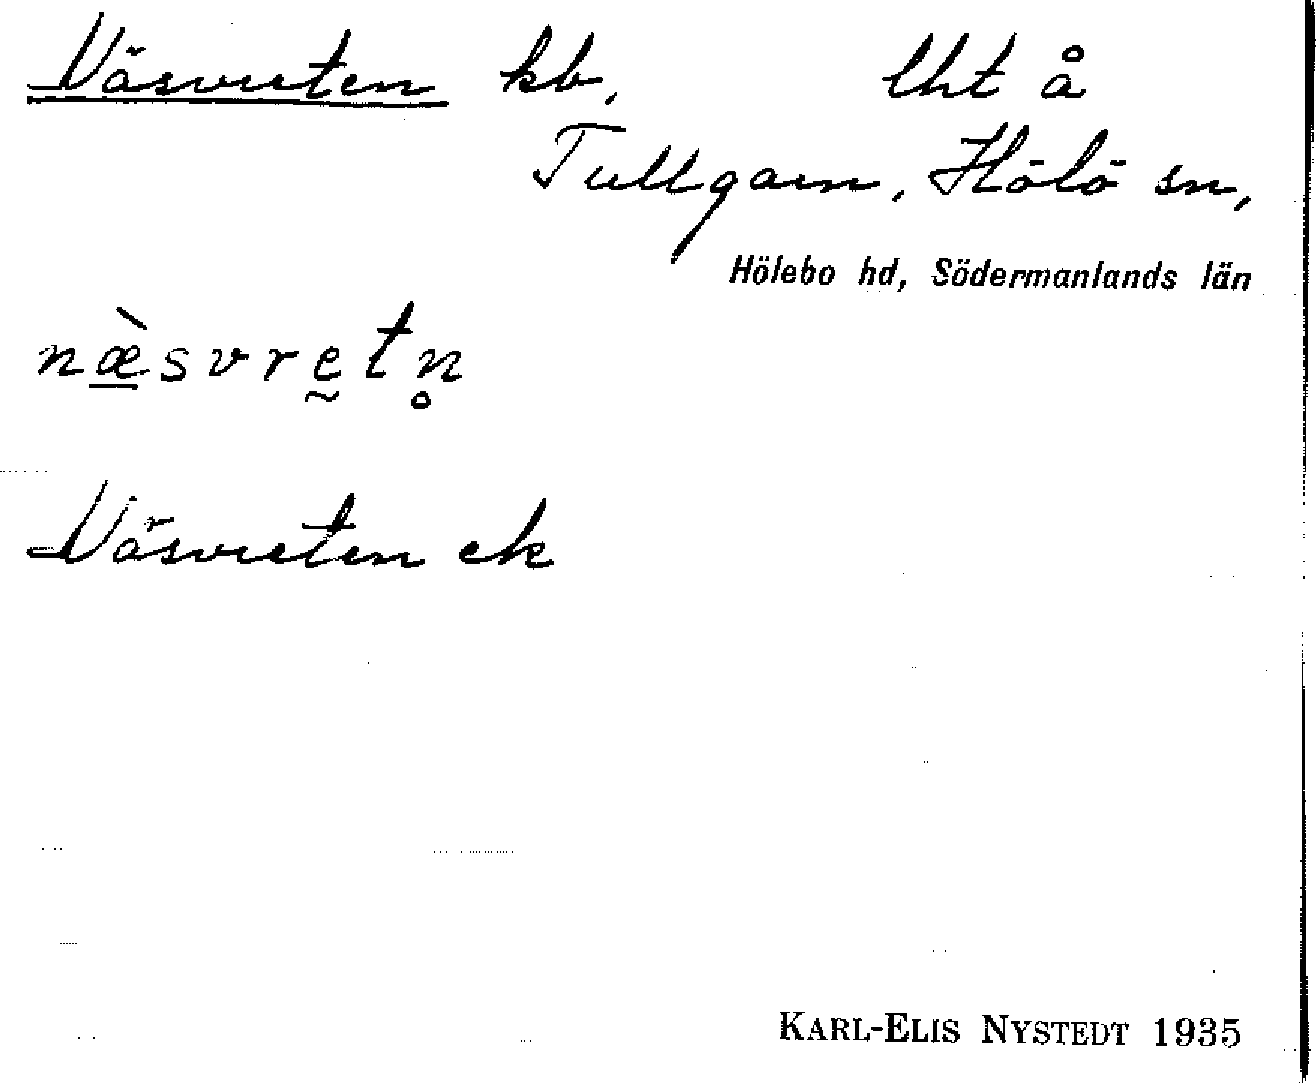 Näsvreten kb, lht å
Tullgarn, Hölö sn,
Hölebo hd, Södermanlands län
næ̀svretn̥
Näsvreten ek
KARL-ELIS NYSTEDT 1935